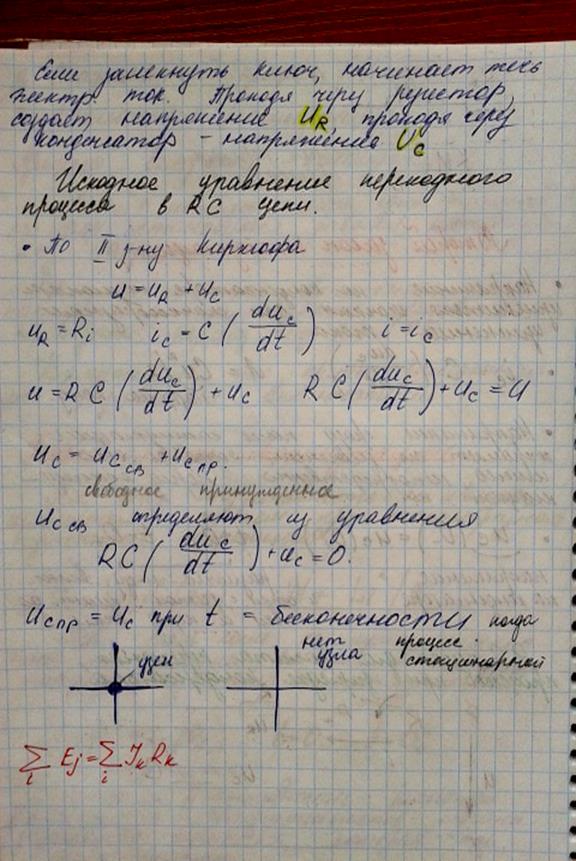 Если замкнуть ключ, начинает течь
электр. ток. Проходя через резистор,
создает напряжение U_R, проходя через
конденсатор - напряжение U_C
Исходное уравнение переходного
процесса в RC цепи.
• По II з-ну Кирхгофа
u = u_R + u_C
u_R = Ri i_C = C (du_C/dt) i = i_C
u = RC (du_C/dt) + u_C RC (du_C/dt) + u_C = U
u_C = u_C св + u_C пр.
свободное принужденное
u_C св определяют из уравнения
RC (du_C/dt) + u_C = 0.
u_C пр = u_C при t = бесконечности когда
узел нет узла процесс стационарный
∑_i E_j = ∑_i I_k R_k